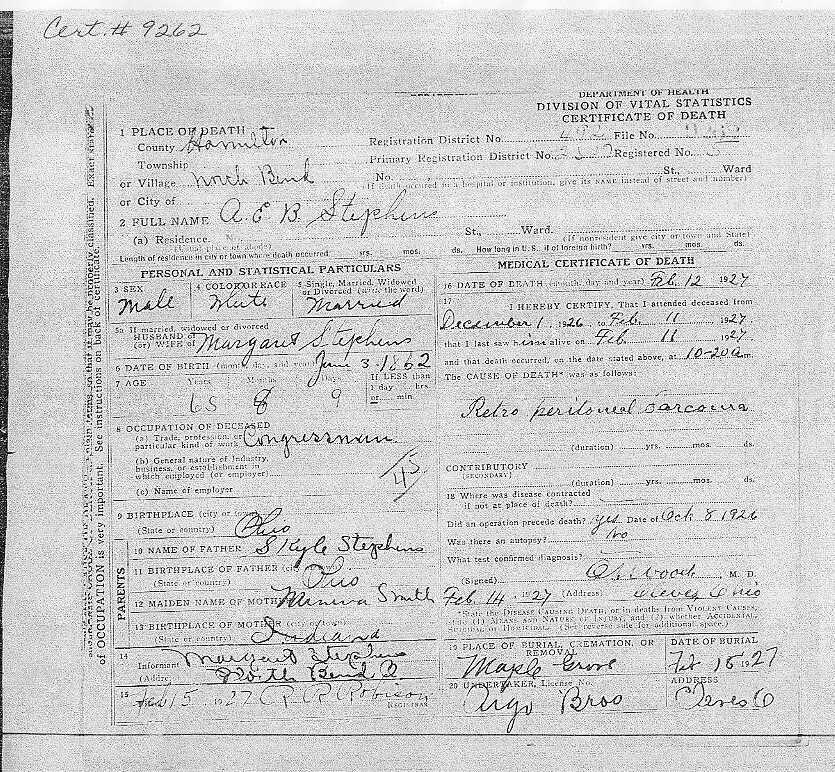 Cert. # 9262
DEPARTMENT OF HEALTH
DIVISION OF VITAL STATISTICS
CERTIFICATE OF DEATH
1 PLACE OF DEATH
County Hamilton
Township
or Village North Bend
or City of
Registration District No. 492 File No.
Primary Registration District No. Registered No. 3
No. St., Ward
(If death occurred in a hospital or institution, give its NAME instead of street and number)
2 FULL NAME A. E. B. Stephens
(a) Residence. No. St., Ward.
(Usual place of abode) (If nonresident give city or town and State)
Length of residence in city or town where death occurred yrs. mos. ds. How long in U. S., if of foreign birth? yrs. mos. ds.
PERSONAL AND STATISTICAL PARTICULARS
3 SEX
Male
4 COLOR OR RACE
White
5 Single, Married, Widowed
or Divorced (write the word)
Married
5a If married, widowed or divorced
HUSBAND of
(or) WIFE of Margaret Stephens
6 DATE OF BIRTH (month, day and year) June 3 - 1862
7 AGE Years Months Days If LESS than
1 day hrs
or min.
65 8 9
8 OCCUPATION OF DECEASED
(a) Trade, profession, or
particular kind of work Congressman.
(b) General nature of Industry,
business, or establishment in
which employed (or employer)
(c) Name of employer
9 BIRTHPLACE (city or town)
(State or country) Ohio
PARENTS
10 NAME OF FATHER S Kyle Stephens
11 BIRTHPLACE OF FATHER (city or town)
(State or country) Ohio
12 MAIDEN NAME OF MOTHER Minerva Smith
13 BIRTHPLACE OF MOTHER (city or town)
(State or country) Indiana
14
Informant Margaret Stephens
(Address North Bend O
15 Feb 15 1927 R. R. Robison
REGISTRAR
MEDICAL CERTIFICATE OF DEATH
16 DATE OF DEATH (month, day and year) Feb. 12 1927
17
I HEREBY CERTIFY, That I attended deceased from
December 1, 1926, to Feb. 11 1927
that I last saw him alive on Feb. 11 1927
and that death occurred, on the date stated above, at 10-20 a m.
The CAUSE OF DEATH* was as follows:
Retro peritoneal Sarcoma
(duration) yrs. mos. ds.
CONTRIBUTORY
(SECONDARY)
(duration) yrs. mos. ds.
18 Where was disease contracted
if not at place of death?
Did an operation precede death? yes Date of Oct 8 1926
Was there an autopsy? No
What test confirmed diagnosis?
(Signed) Wood M. D.
Feb. 14, 1927 (Address) Cleves Ohio
*State the DISEASE CAUSING DEATH, or in deaths from VIOLENT CAUSES,
state (1) MEANS AND NATURE OF INJURY, and (2) whether ACCIDENTAL,
SUICIDAL or HOMICIDAL. (See reverse side for additional space.)
19 PLACE OF BURIAL, CREMATION, OR
REMOVAL
Maple Grove
DATE OF BURIAL
Feb 15 1927
20 UNDERTAKER, License No.
Argo Bros
ADDRESS
Cleves O
of OCCUPATION is very important. See instructions on back of certificate.